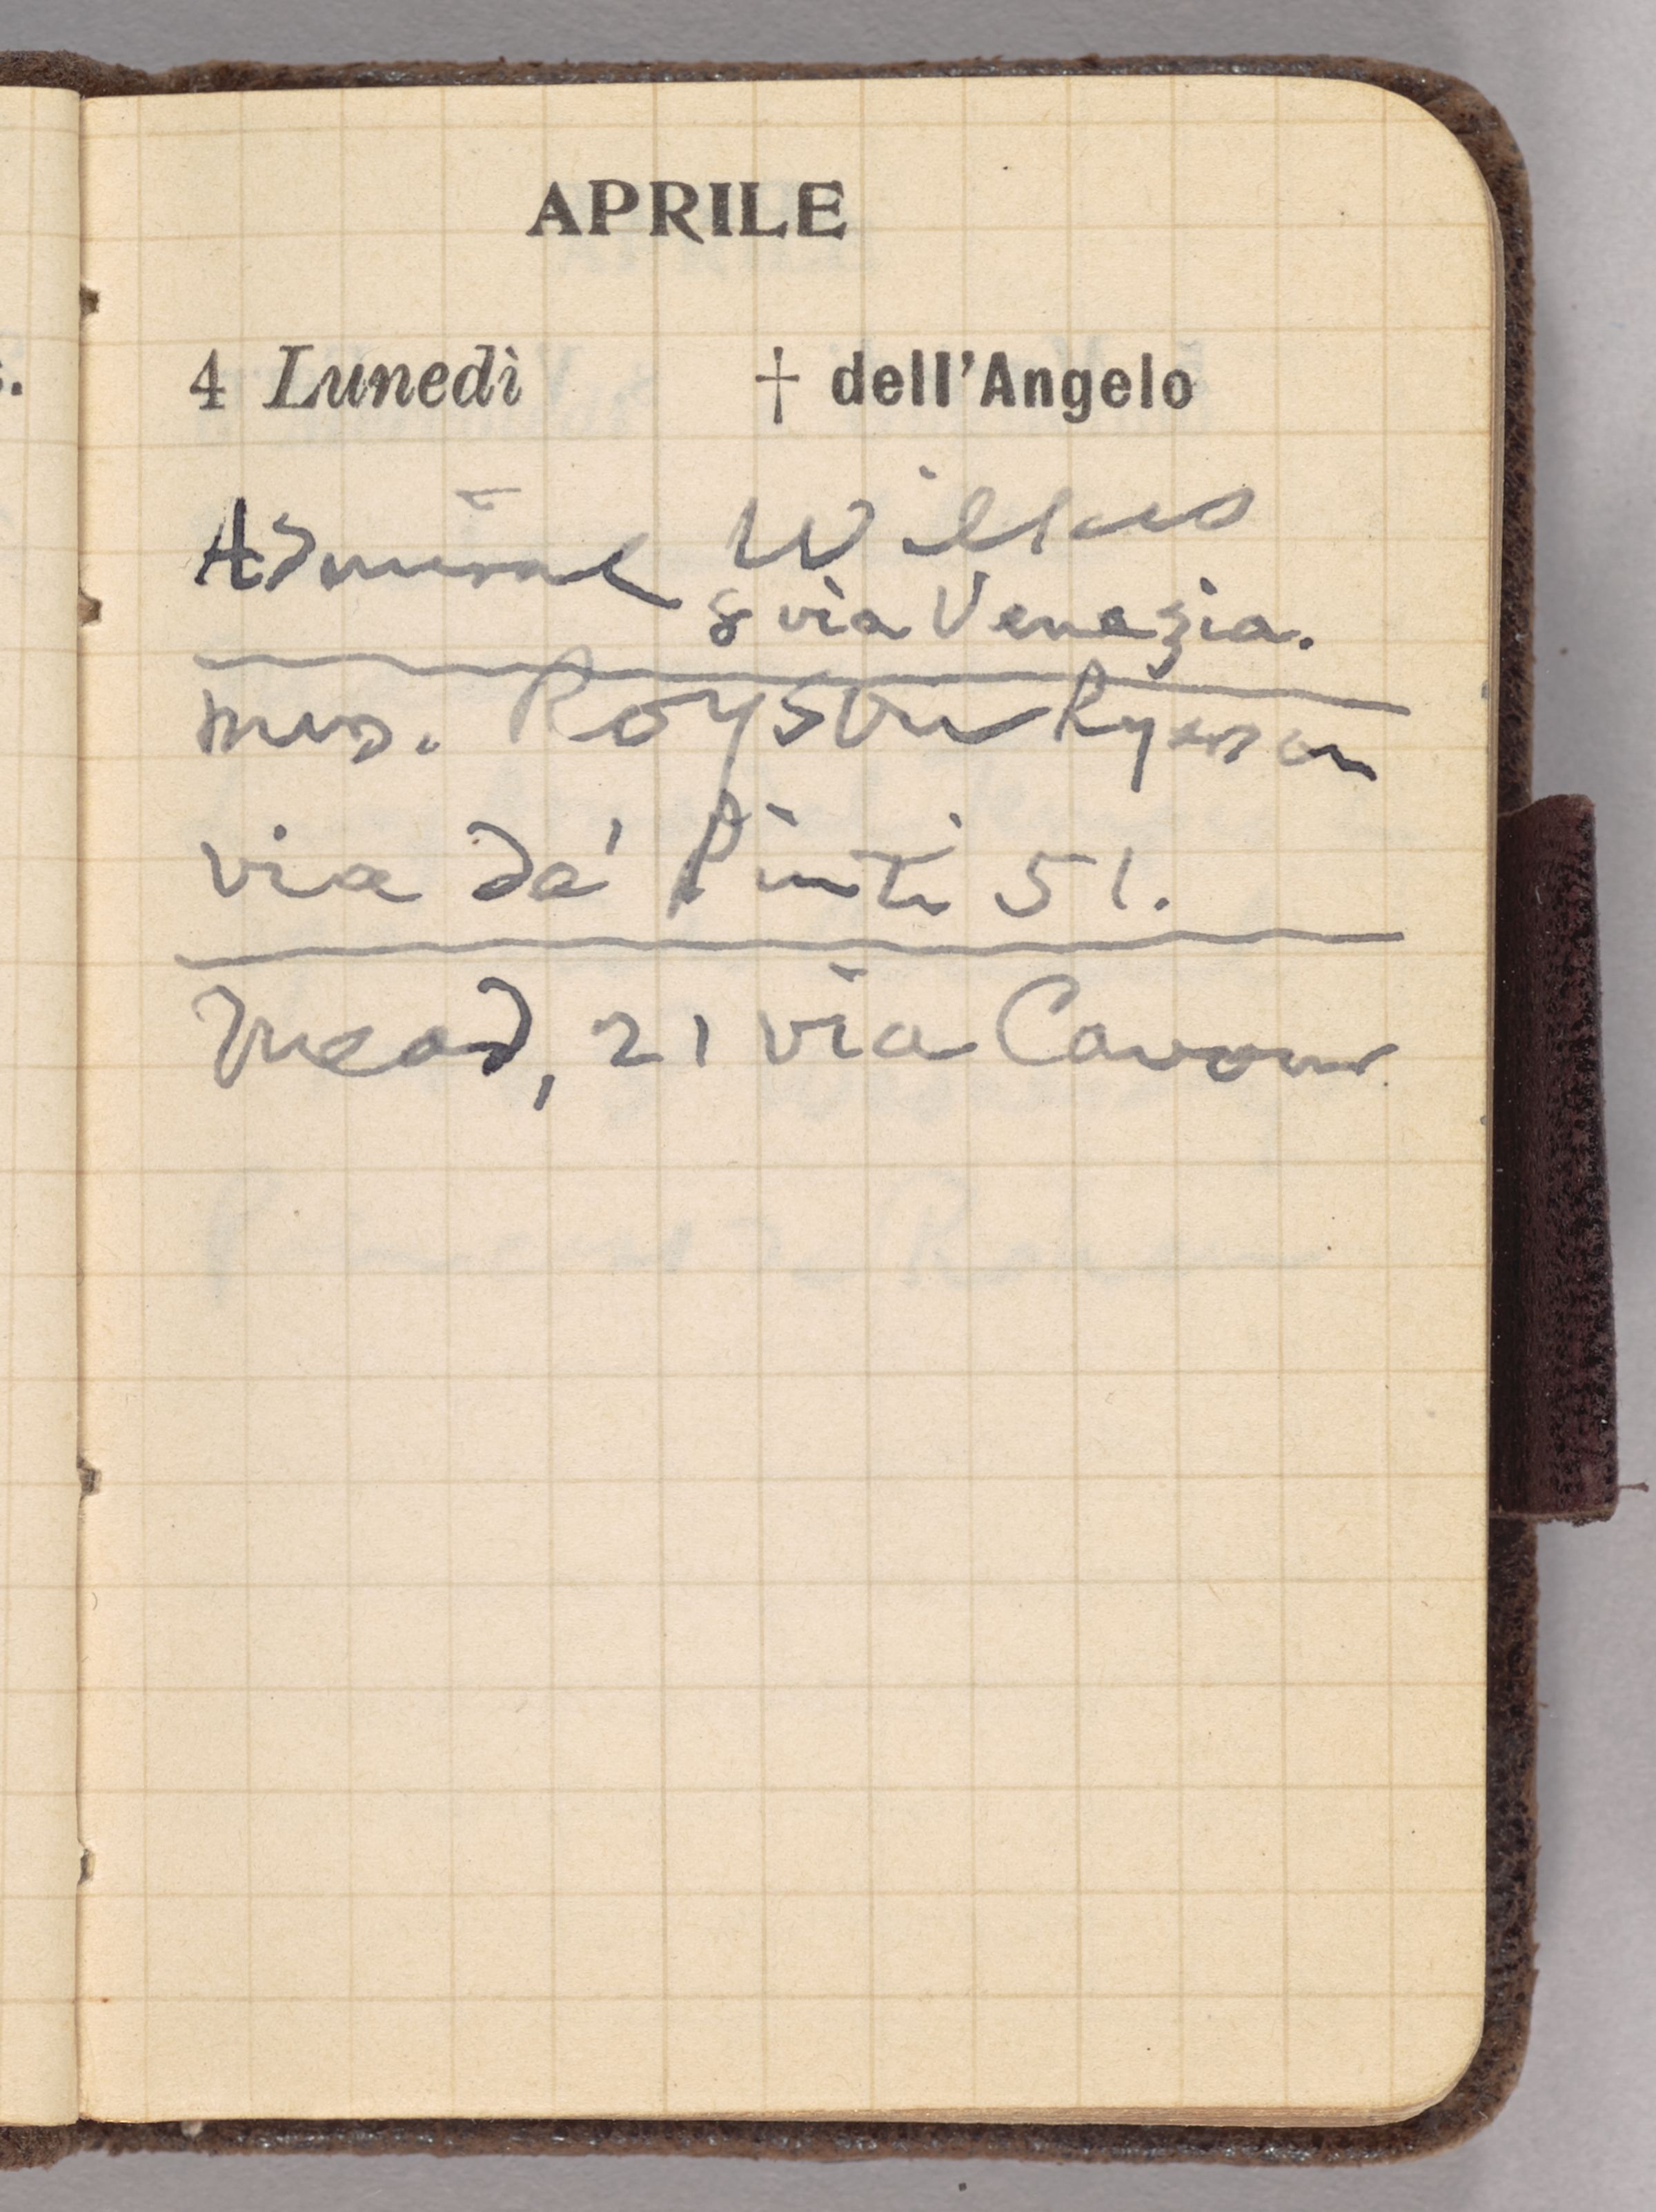 APRILE
4 Lunedì † dell'Angelo
Admiral Wilkes
8 via Venezia.
mrs. Royston Ryerson
via da' Pinti 51.
Mead, 21 via Cavour